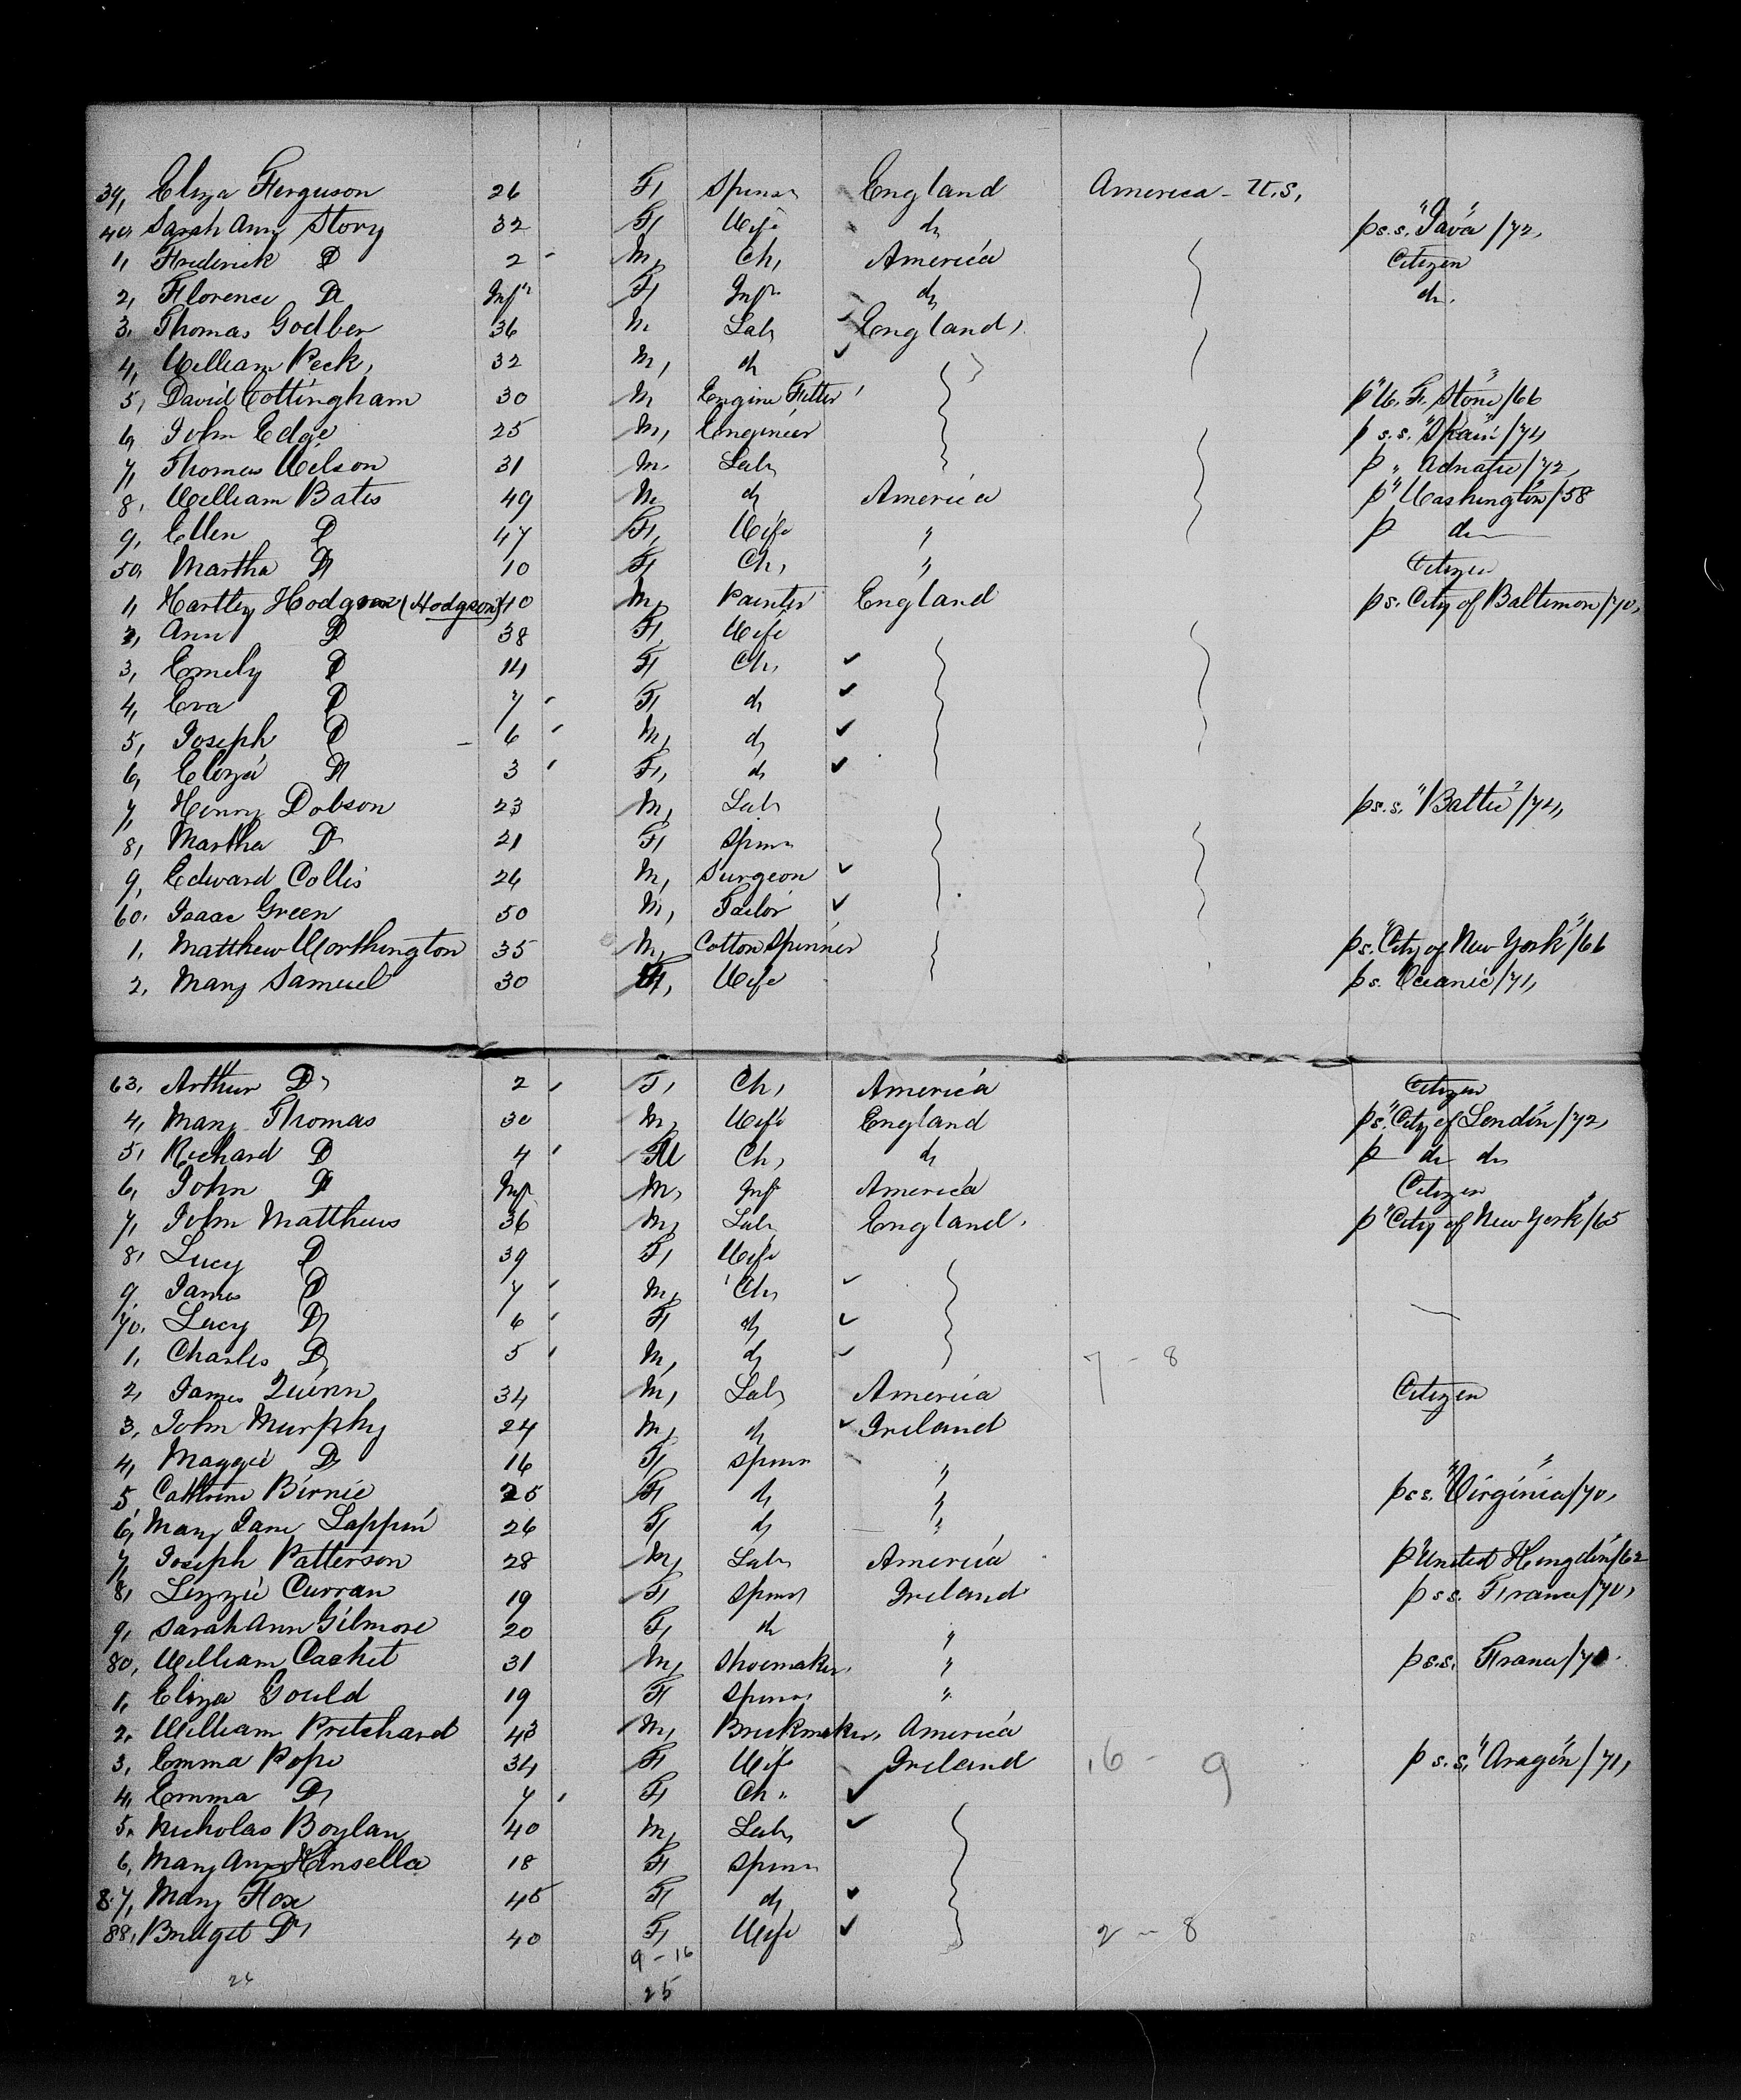 39, Eliza Ferguson 26 F, Spinsr England America - U.S.
40, Sarah Ann Story 32 F, Wife do p s.s. "Java"/72,
1, Frederick Do 2 M, Ch, America Citizen
2, Florence Do Inft F, Inft do do.
3, Thomas Godber 36 M Labr England,
4, William Peck, 32 M, do
5, David Cottingham 30 M Engine Fitter p "W. F. Stone"/66
6, John Edge 25 M, Engineer p s.s. "Spain"/74
7, Thomas Wilson 31 M. Labr p " Adriatic/72,
8, William Bates 49 M do America p "Washington"/58
9, Ellen Do 47 F, Wife " p do
50, Martha Do 10 F, Ch, " Citizen
1, Hartley (Hodgson) 40 M, Painter England p s. City of Baltimore/70,
2, Ann Do 38 F, Wife
3, Emily Do 14 F, Ch,
4, Eva Do 7 F, do
5, Joseph Do 6 M, do
6, Eliza Do 3 F, do
7, Henry Dobson 23 M, Labr p s.s. "Baltic"/74,
8, Martha Do 21 F, Spinsr
9, Edward Collis 24 M, Surgeon
60, Isaac Green 50 M, Tailor
1, Matthew Worthington 35 M, Cotton Spinner p s. "City of New York"/66
2, Mary Samuel 30 F, Wife p s. Oceanic/71,
63, Arthur Do 2 F, Ch, America Citizen
4, Mary Thomas 30 M, Wife England p s. "City of London"/72,
5, Richard Do 4 M Ch, do p do do
6, John Do Inft M, Inft America Citizen
7, John Matthews 36 M, Labr England. p "City of New York"/65
8, Lucy Do 39 F, Wife
9, James Do 7 M, Ch,
70, Lucy Do 6 F, do
1, Charles Do 5 M, do 7 - 8
2, James Quinn 34 M, Labr America Citizen
3, John Murphy 24 M, do Ireland
4, Maggie Do 16 F, Spinsr "
5, Cathrine Birnie 25 F, do " p s.s. "Virginia"/70,
6, Mary Jane Lappin 26 F, do "
7, Joseph Patterson 28 M, Labr America p "United Kingdom"/62
8, Lizzie Curran 19 F, Spinsr Ireland p s.s. France/70,
9, Sarah Ann Gilmore 20 F, do "
80, William Cachet 31 M, Shoemaker, " p s.s. France/7
1, Eliza Gould 19 F, Spinsr "
2, William Pritchard 43 M, Brickmaker, America
3, Emma Pope 34 F, Wife Ireland 16 - 9 p s.s. "Aragon"/71,
4, Emma Do 7 F, Ch "
5, Nicholas Boylan 40 M, Labr
6, Mary Ann Kinsella 18 F, Spinsr
87, Mary Fox 45 F, do
88, Bridget Do 40 F, Wife 2 - 8
9 - 16
26 25